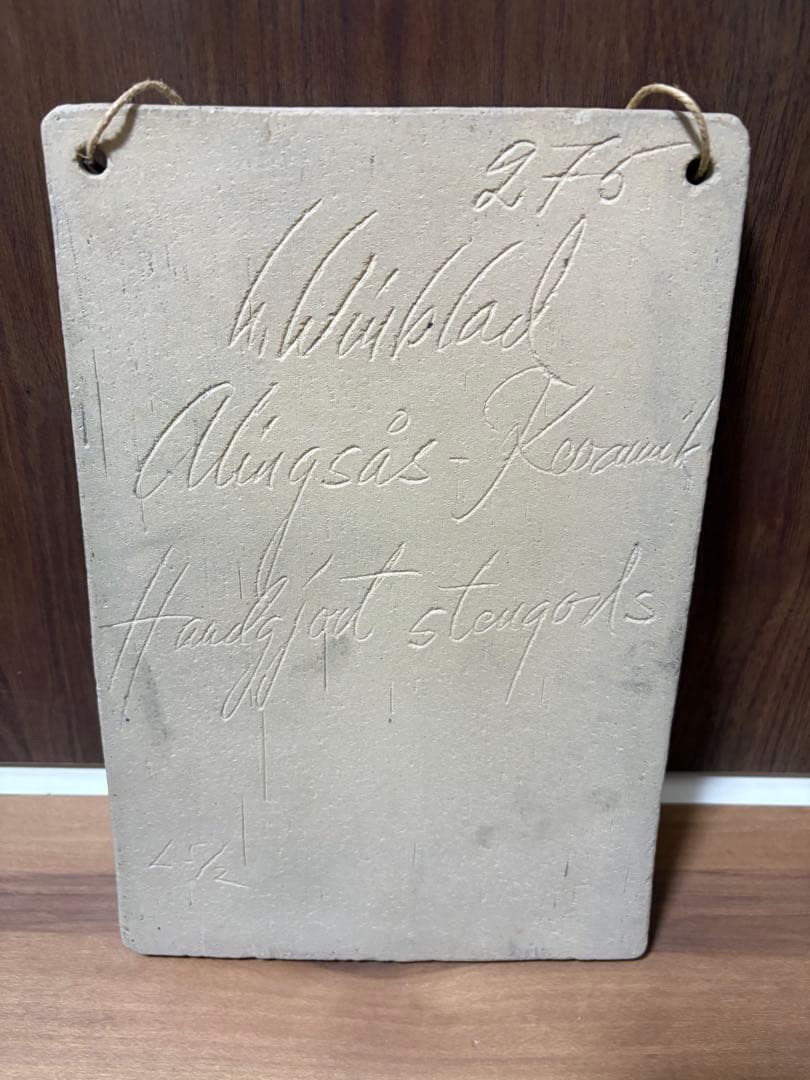 275
Winblad
Alingsås - Keramik
Handgjort stengods